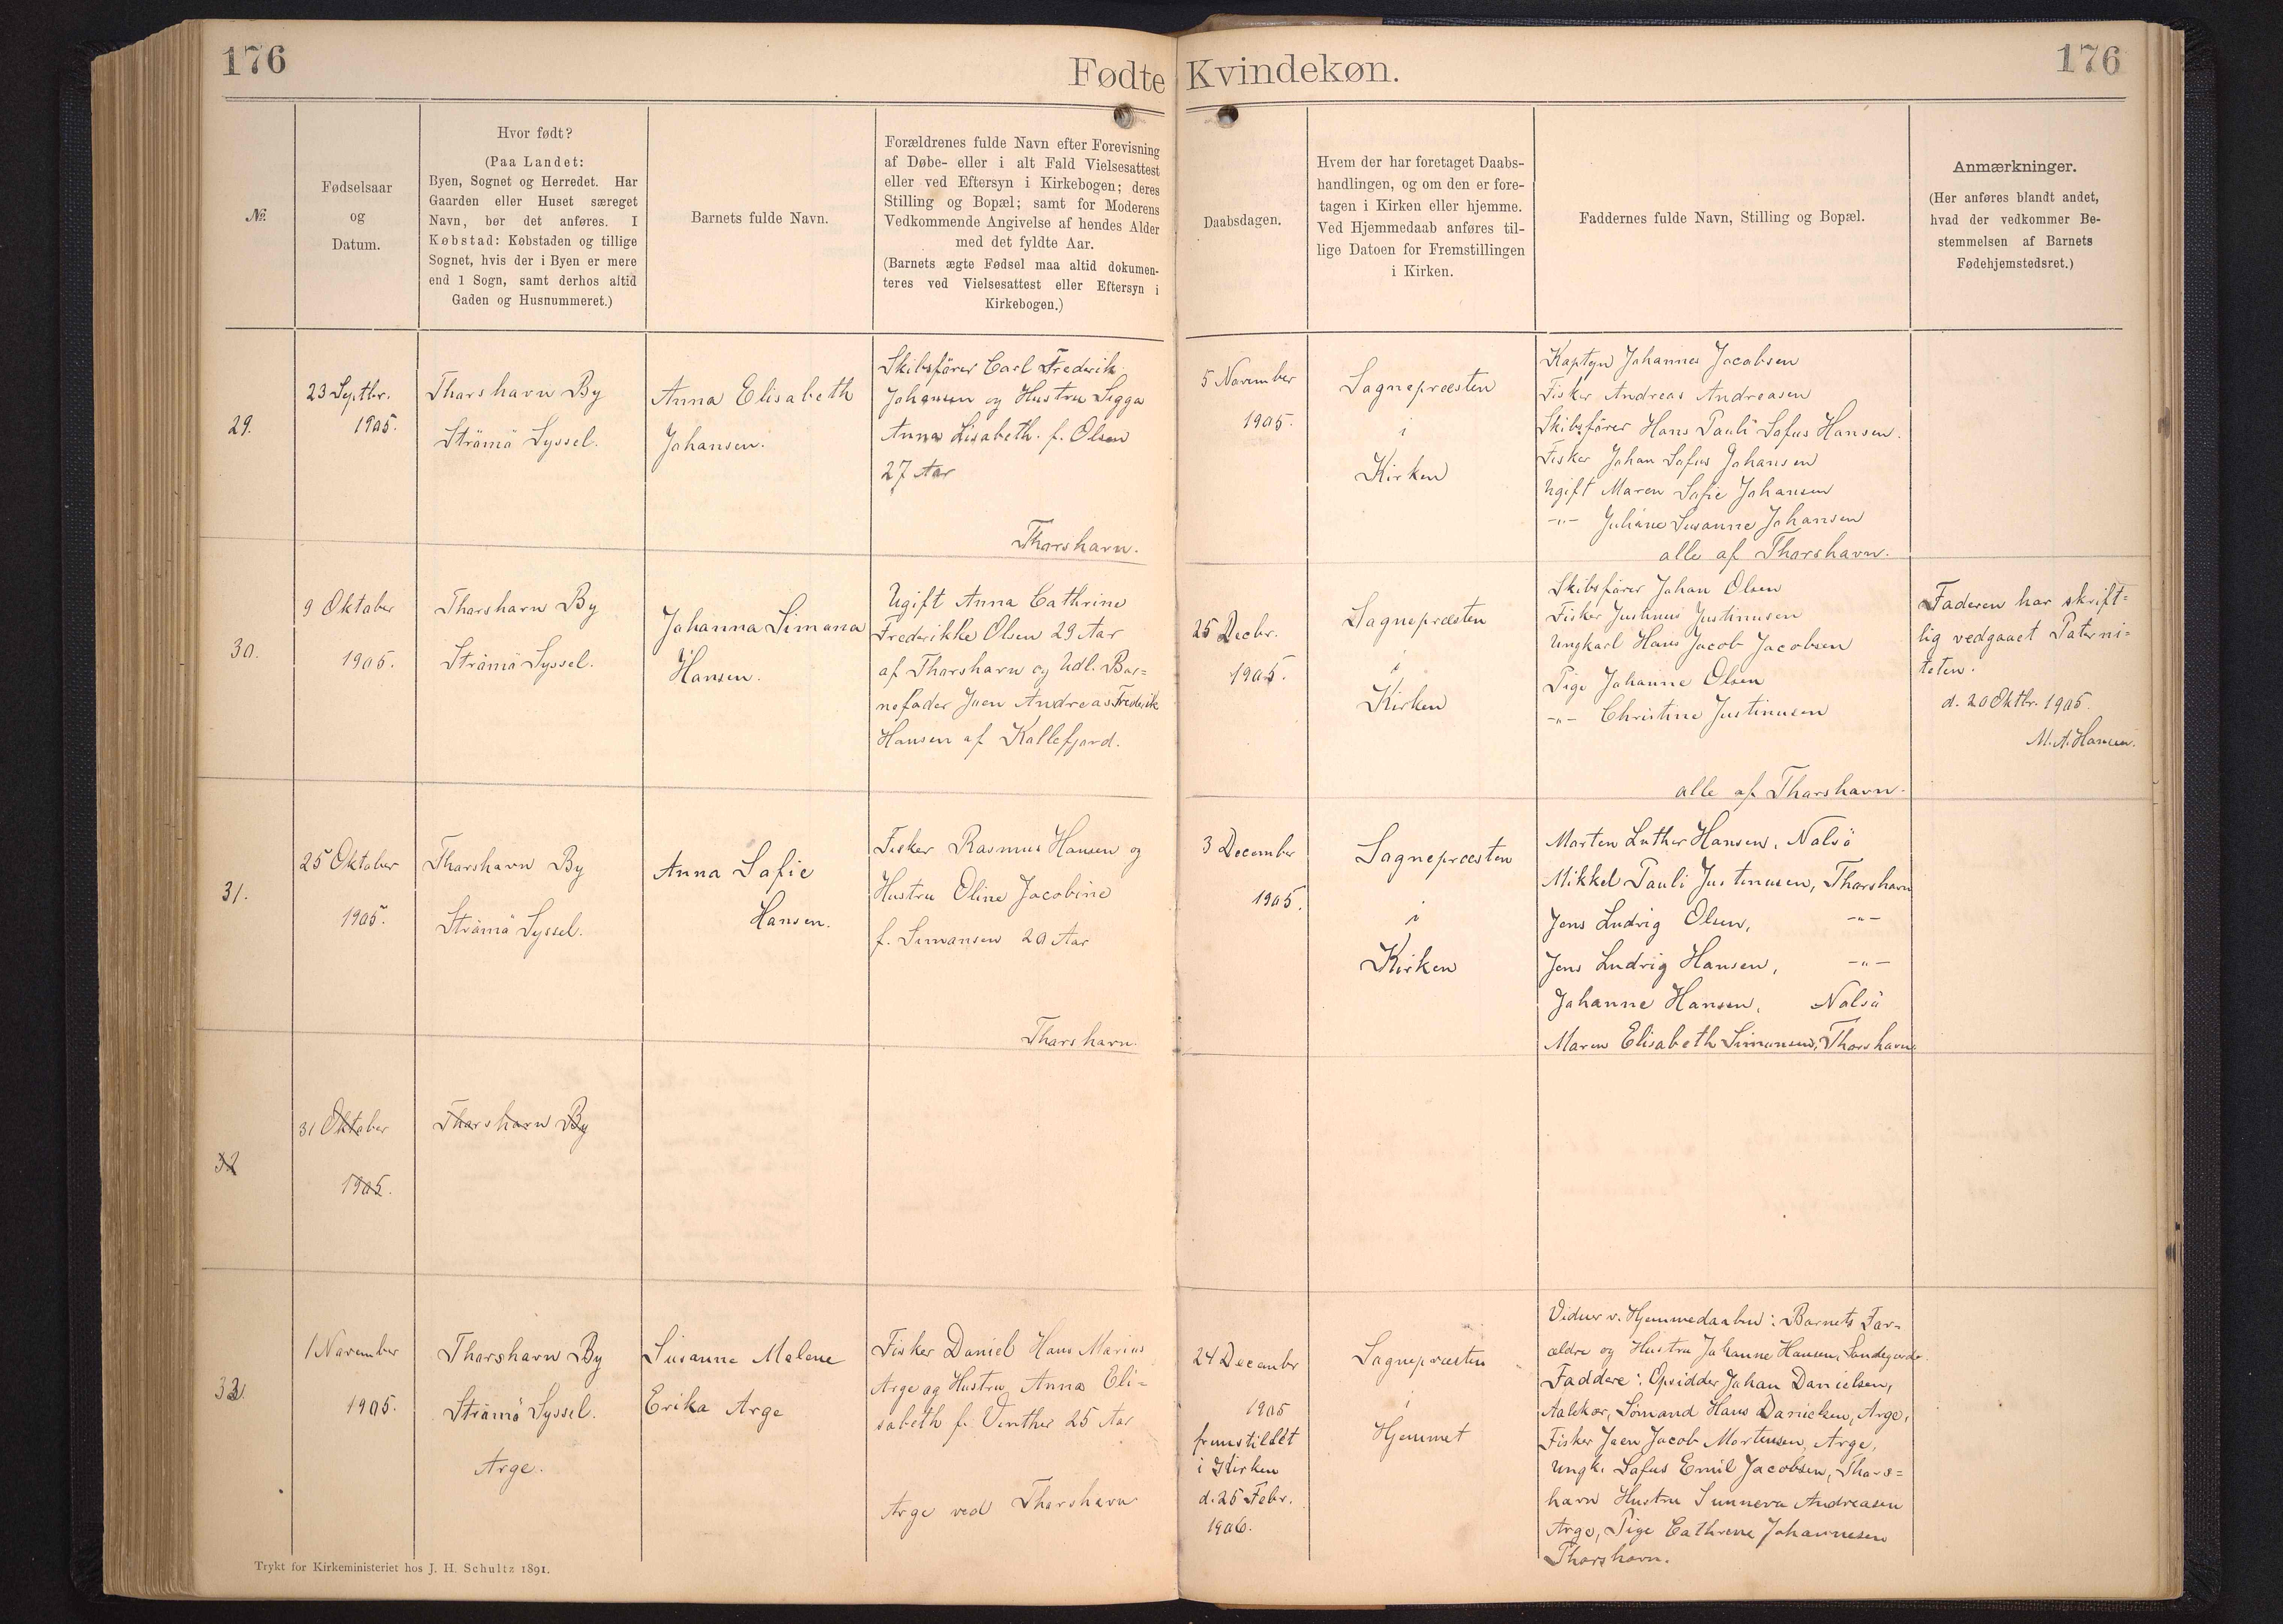 176
Fødte Kvindekøn.
176
№.
Fødselsaar
og
Datum.
Hvor født?
(Paa Landet:
Byen, Sognet og Herredet. Har
Gaarden eller Huset særeget
Navn, bør det anføres. I
Købstad: Købstaden og tillige
Sognet, hvis der i Byen er mere
end 1 Sogn, samt derhos altid
Gaden og Husnummeret.)
Barnets fulde Navn.
Forældrenes fulde Navn efter Forevisning
af Døbe- eller i alt Fald Vielsesattest
eller ved Eftersyn i Kirkebogen; deres
Stilling og Bopæl; samt for Moderens
Vedkommende Angivelse af hendes Alder
med det fyldte Aar.
(Barnets ægte Fødsel maa altid dokumen-
teres ved Vielsesattest eller Eftersyn i
Kirkebogen.)
Daabsdagen.
Hvem der har foretaget Daabs-
handlingen, og om den er fore-
tagen i Kirken eller hjemme.
Ved Hjemmedaab anføres til-
lige Datoen for Fremstillingen
i Kirken.
Faddernes fulde Navn, Stilling og Bopæl.
Anmærkninger.
(Her anføres blandt andet,
hvad der vedkommer Be-
stemmelsen af Barnets
Fødehjemstedsret.)
29.
23 Septbr.
1905.
Thorshavn By
Strömö Syssel.
Anna Elisabeth
Johansen.
Skibsfører Carl Frederik
Johansen og Hustru Sigga
Anna Lisabeth. f. Olsen
27 Aar
Thorshavn.
5 November
1905.
Sognepræsten
i
Kirken
Kaptyn Johannes Jacobsen
Fisker Andreas Andreasen
Skibsfører Hans Pauli Sofus Hansen.
Fisker Johan Sofus Johansen
Ugift Maren Sofie Johansen
-"- Juliane Susanne Johansen
alle af Thorshavn.
30.
9 Oktober
1905.
Thorshavn By
Strömö Syssel.
Johanna Simona
Hansen.
Ugift Anna Cathrine
Frederikke Olsen 29 Aar
af Thorshavn og Udl. Bar=
nefader Joen Andreas Frederik
Hansen af Kollefjord.
25 Decbr.
1905.
Sognepræsten
i
Kirken
Skibsfører Johan Olsen
Fisker Justinus Justinusen
Ungkarl Hans Jacob Jacobsen
Pige Johanne Olsen
-"- Christine Justinusen
alle af Thorshavn.
Faderen har skrift=
lig vedgaaet Paterni=
teten.
d. 20 Oktbr. 1905.
M. A. Hansen.
31.
25 Oktober
1905.
Thorshavn By
Strömö Syssel.
Anna Sofie
Hansen.
Fisker Rasmus Hansen og
Hustru Oline Jacobine
f. Simonsen 20 Aar
Thorshavn.
3 December
1905.
Sognepræsten
i
Kirken
Morten Luther Hansen, Nolsö
Mikkel Pauli Justinusen, Thorshavn
Jens Ludvig Olsen, -"-
Jens Ludvig Hansen, -"-
Johanne Hansen, Nolsö
Maren Elisabeth Simonsen, Thorshavn.
32
31 Oktober
1905.
Thorshavn By
32.
1 November
1905.
Thorshavn By
Strömö Syssel.
Arge.
Susanne Malene
Erika Arge
Fisker Daniel Hans Marius
Arge og Hustru Anna Eli=
sabeth f. Vinther 25 Aar
Arge ved Thorshavn
24 December
1905
fremstillet
i Kirken
d. 25 Febr.
1906.
Sognepræsten
i
Hjemmet
Vidner v. Hjemmedaaben: Barnets For-
ældre og Hustru Johanne Hansen, Sandegerde.
Faddere: Opsidder Johan Danielsen,
Sömand Hans Danielsen, Arge,
Fisker Joen Jacob Mortensen, Arge,
Ungk. Sofus Emil Jacobsen, Thors=
havn Hustru Sunneva Andreasen
Arge, Pige Cathrine Johannesen
Thorshavn.
Trykt for Kirkeministeriet hos J. H. Schultz 1891.